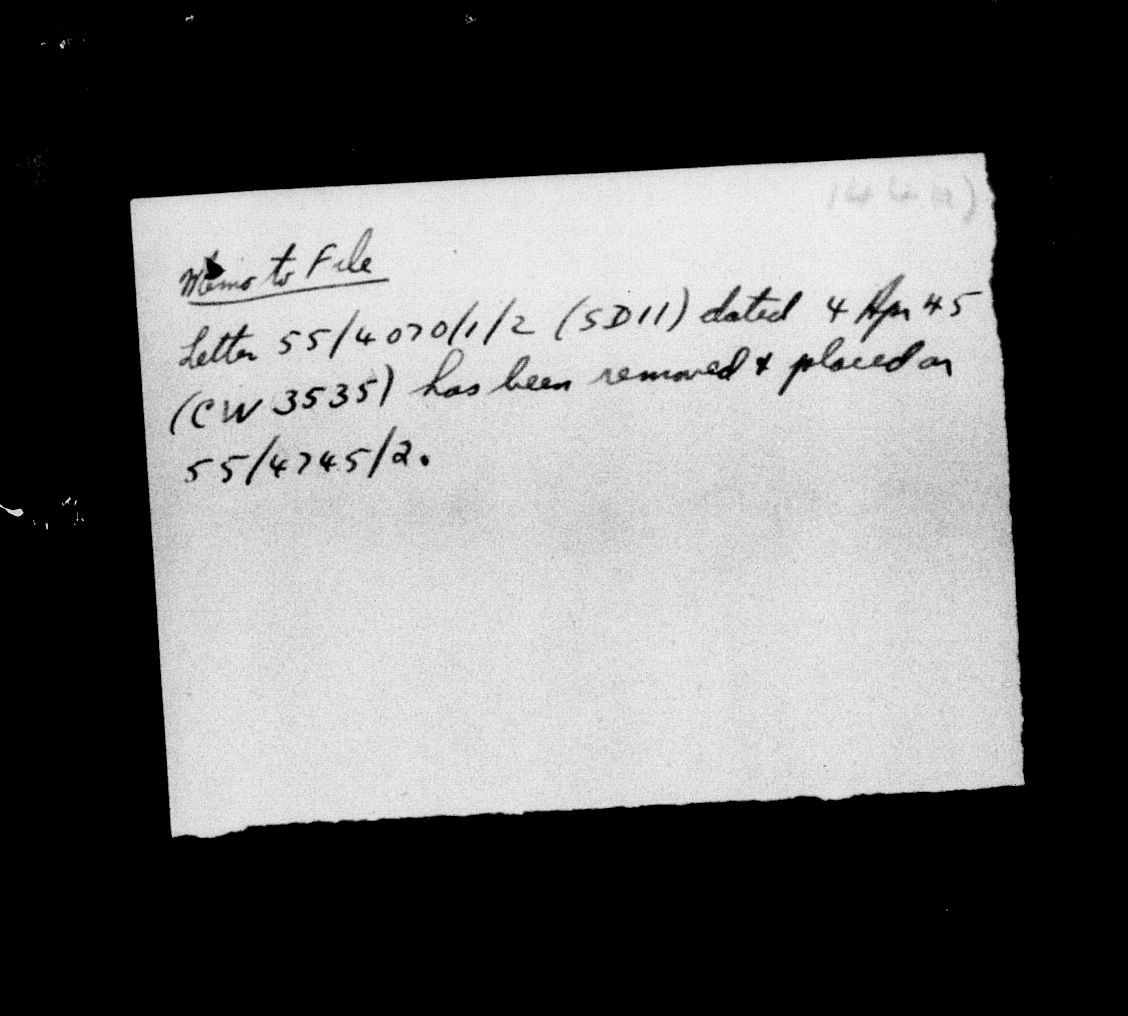 Memo to File
Letter 55/4070/1/2 (SD11) dated 4 Apr 45
(CW 3535) has been removed & placed on
55/4745/2.